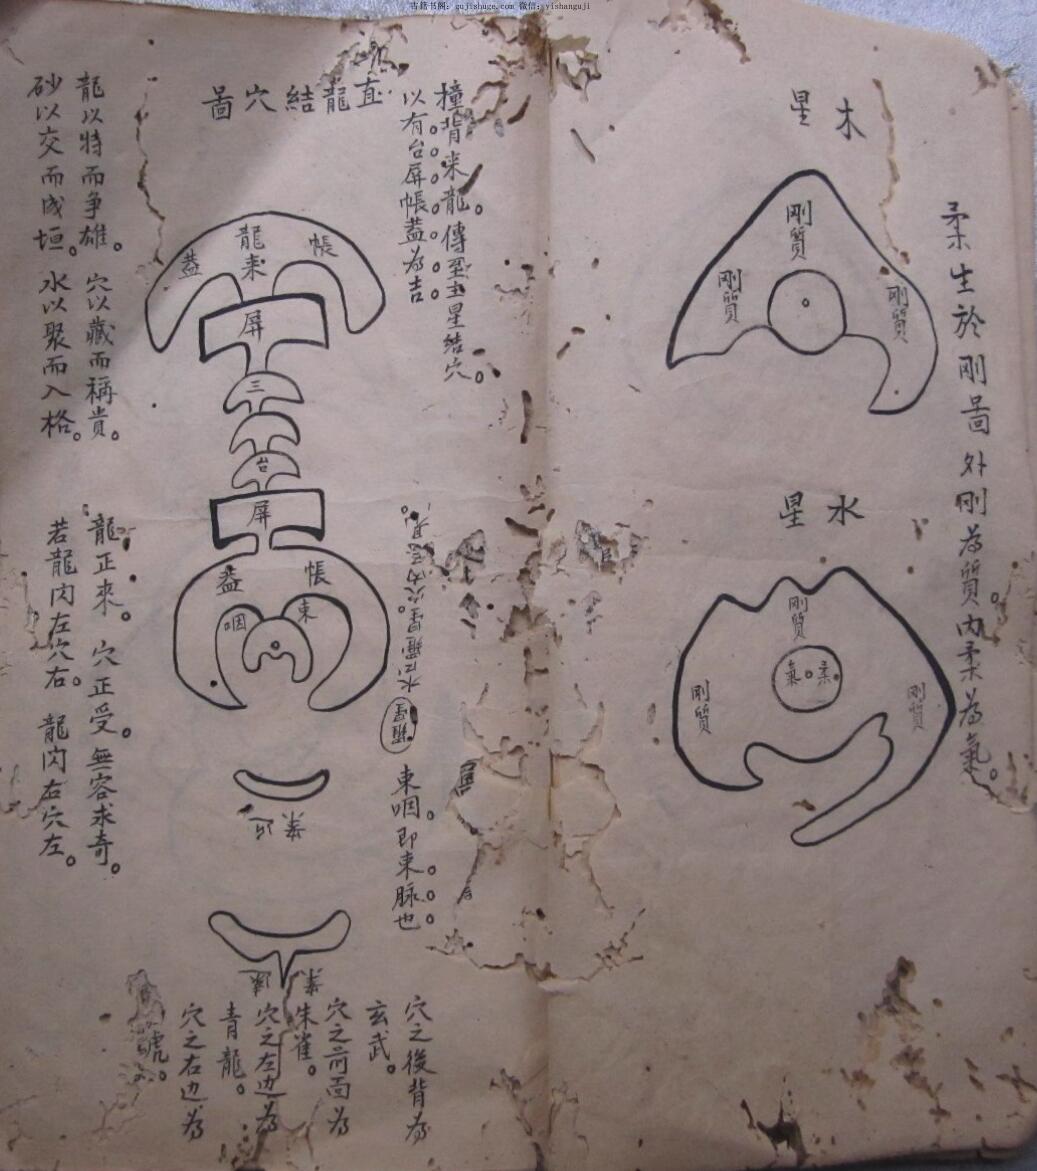 古籍书阁：gujishuge.com 微信：yishanguji
柔生於剛啚 外剛為質。內柔為氣。
木星
剛質
剛質
剛質
水星
剛質
柔氣
剛質
剛質
撞背來龍。傳至主星結穴。
以有台屏帳蓋為吉
直龍結穴啚
帳
龍來
蓋
屏
三
台
屏
帳
蓋
束
咽
近案
案
束咽。即束脉也
穴之後背為
玄武。
穴之前面為
朱雀。
穴之左边為
青龍。
穴之右边為
號。
龍以特而争雄。穴以藏而稱貴。
砂以交而成垣。水以聚而入格。
龍正來。穴正受。無容求奇。
若龍閃左穴右。龍閃右穴左。